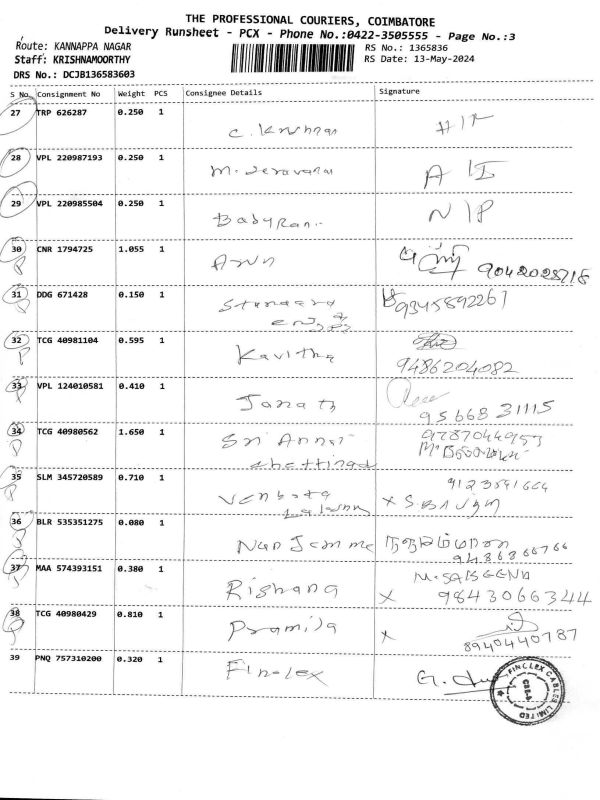 THE PROFESSIONAL COURIERS, COIMBATORE
Delivery Runsheet - PCX - Phone No.:0422-3505555 - Page No.:3
Route: KANNAPPA NAGAR
RS No.: 1365836
Staff: KRISHNAMOORTHY
RS Date: 13-May-2024
DRS No.: DCJB136583603
S No. Consignment No Weight PCS Consignee Details Signature
27 TRP 626287 0.250 1
28 VPL 220987193 0.250 1
29 VPL 220985504 0.250 1 BabyRani N/P
30 CNR 1794725 1.055 1 Arun 9042028718
31 DDG 671428 0.150 1 Standard 9345892267
32 TCG 40981104 0.595 1 Kavitha
9486204082
33 VPL 124010581 0.410 1 Janath
95668 31115
34 TCG 40980562 1.650 1 Sri Annai 9787044953
chettinad
35 SLM 345720589 0.710 1 Venkata
36 BLR 535351275 0.080 1 NanJamma நஞ்சம்மாள்
37 MAA 574393151 0.380 1 Rishana M.SABEENA
X 9843066344
38 TCG 40980429 0.810 1 Pramila X
8940440787
39 PNQ 757310200 0.320 1 Finolex G.
FINOLEX CABLES LIMITED
CBE-9